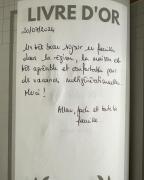 LIVRE D'OR
20/07/2024
Un très beau séjour en famille
dans la région, la maison est
très agréable et confortable pour
des vacances multigénérationnelles.
Merci !
Alban, et toute la
famille.